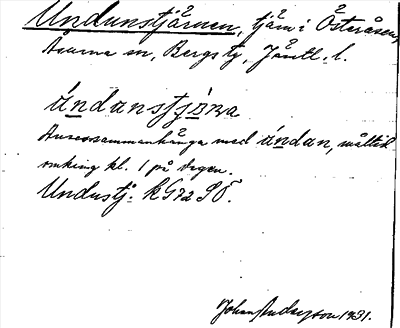 Undunstjärnen, tjärn i Österåsen,
Åsarna sn, Bergs tg, Jämtl. l.
úndanstjɔ̈ɳa
Anses sammanhänga med úndan, måltid
omkring kl. 1 på dagen.
Undustj. RG 72 SÖ.
Johan Anderson 1931.